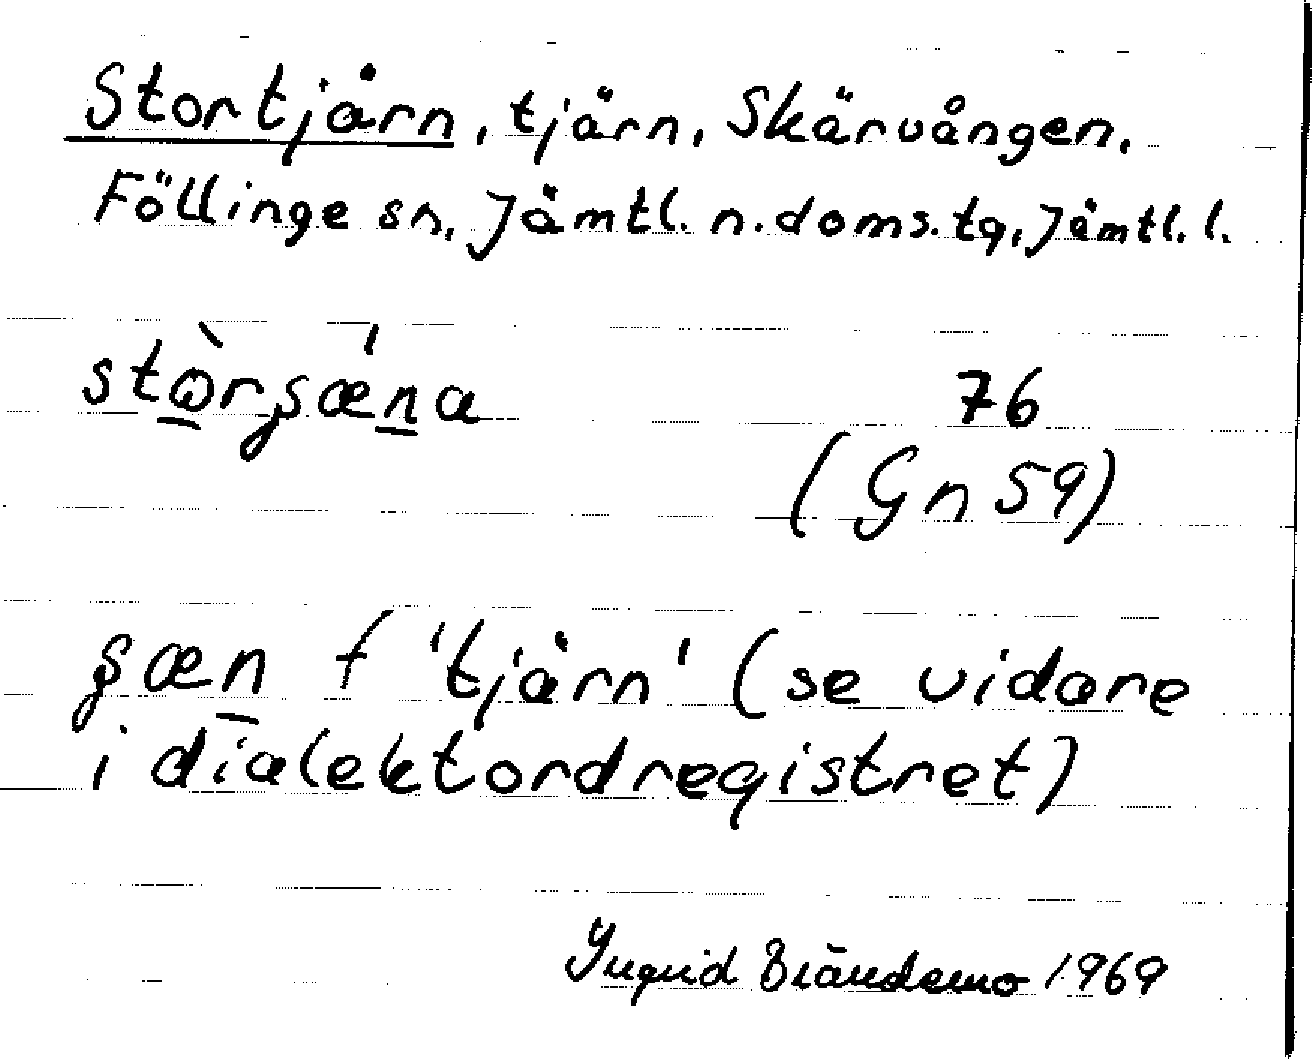 Stortjärn, tjärn, Skärvången.
Föllinge sn, Jämtl. n. doms. tg, Jämtl. l.
stòrʂǽna
76
(Gn 59)
ʂæn f 'tjärn' (se vidare
i dialektordregistret)
Ingrid Brändemo 1969